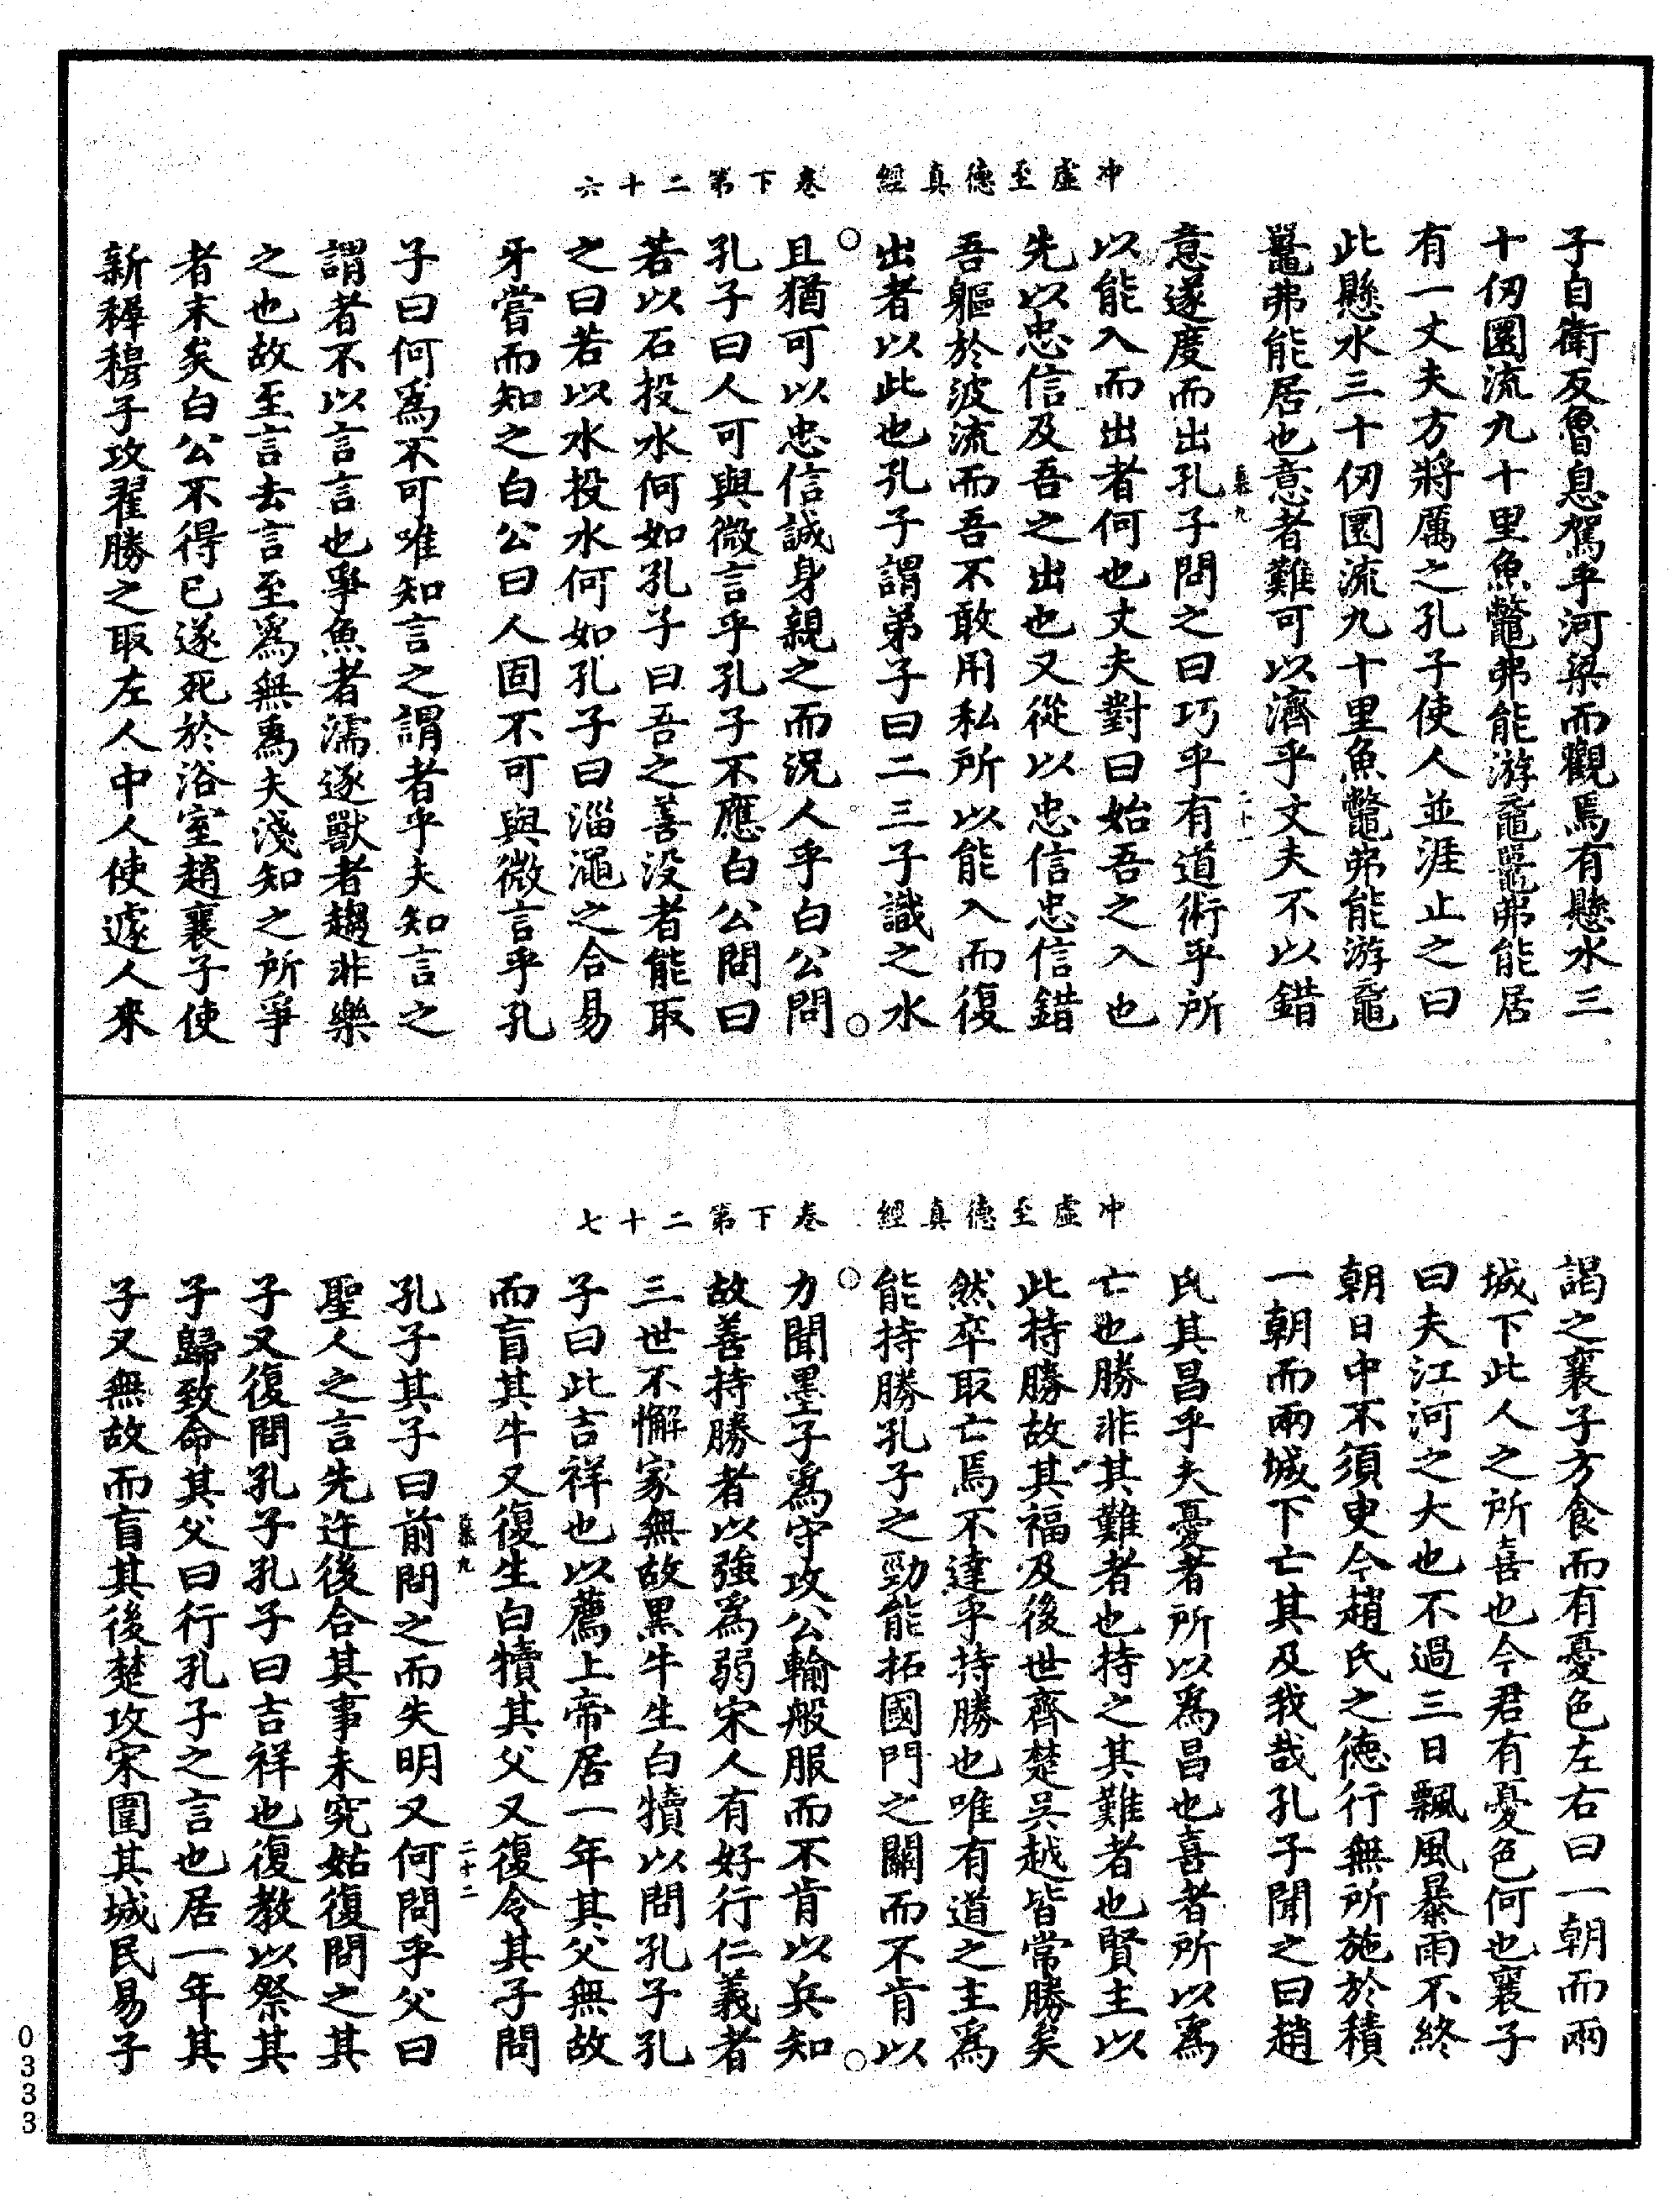 冲虛至德真經　卷下第二十六
子自衛反魯息駕乎河梁而觀焉有懸水三
十仞圜流九十里魚鼈弗能游黿鼉弗能居
有一丈夫方將厲之孔子使人並涯止之曰
此懸水三十仞圜流九十里魚鼈弗能游黿
鼉弗能居也意者難可以濟乎丈夫不以錯
意遂度而出孔子問之曰巧乎有道術乎所
以能入而出者何也丈夫對曰始吾之入也
先以忠信及吾之出也又從以忠信忠信錯
吾軀於波流而吾不敢用私所以能入而復
出者以此也孔子謂弟子曰二三子識之水
且猶可以忠信誠身親之而況人乎白公問
孔子曰人可與微言乎孔子不應白公問曰
若以石投水何如孔子曰吾之善没者能取
之曰若以水投水何如孔子曰淄澠之合易
牙嘗而知之白公曰人固不可與微言乎孔
子曰何爲不可唯知言之謂者乎夫知言之
謂者不以言言也爭魚者濡逐獸者趨非樂
之也故至言去言至爲無爲夫淺知之所爭
者末矣白公不得已遂死於浴室趙襄子使
新穉穆子攻翟勝之取左人中人使遽人來
冲虛至德真經　卷下第二十七
謁之襄子方食而有憂色左右曰一朝而兩
城下此人之所喜也今君有憂色何也襄子
曰夫江河之大也不過三日飄風暴雨不終
朝日中不須臾今趙氏之德行無所施於積
一朝而兩城下亡其及我哉孔子聞之曰趙
氏其昌乎夫憂者所以爲昌也喜者所以爲
亡也勝非其難者也持之其難者也賢主以
此持勝故其福及後世齊楚吳越皆常勝矣
然卒取亡焉不達乎持勝也唯有道之主爲
能持勝孔子之勁能拓國門之關而不肯以
力聞墨子爲守攻公輸般服而不肯以兵知
故善持勝者以強爲弱宋人有好行仁義者
三世不懈家無故黑牛生白犢以問孔子孔
子曰此吉祥也以薦上帝居一年其父無故
而盲其牛又復生白犢其父又復令其子問
孔子其子曰前問之而失明又何問乎父曰
聖人之言先迕後合其事未究姑復問之其
子又復問孔子孔子曰吉祥也復教以祭其
子歸致命其父曰行孔子之言也居一年其
子又無故而盲其後楚攻宋圍其城民易子
二十一
二十二
0333